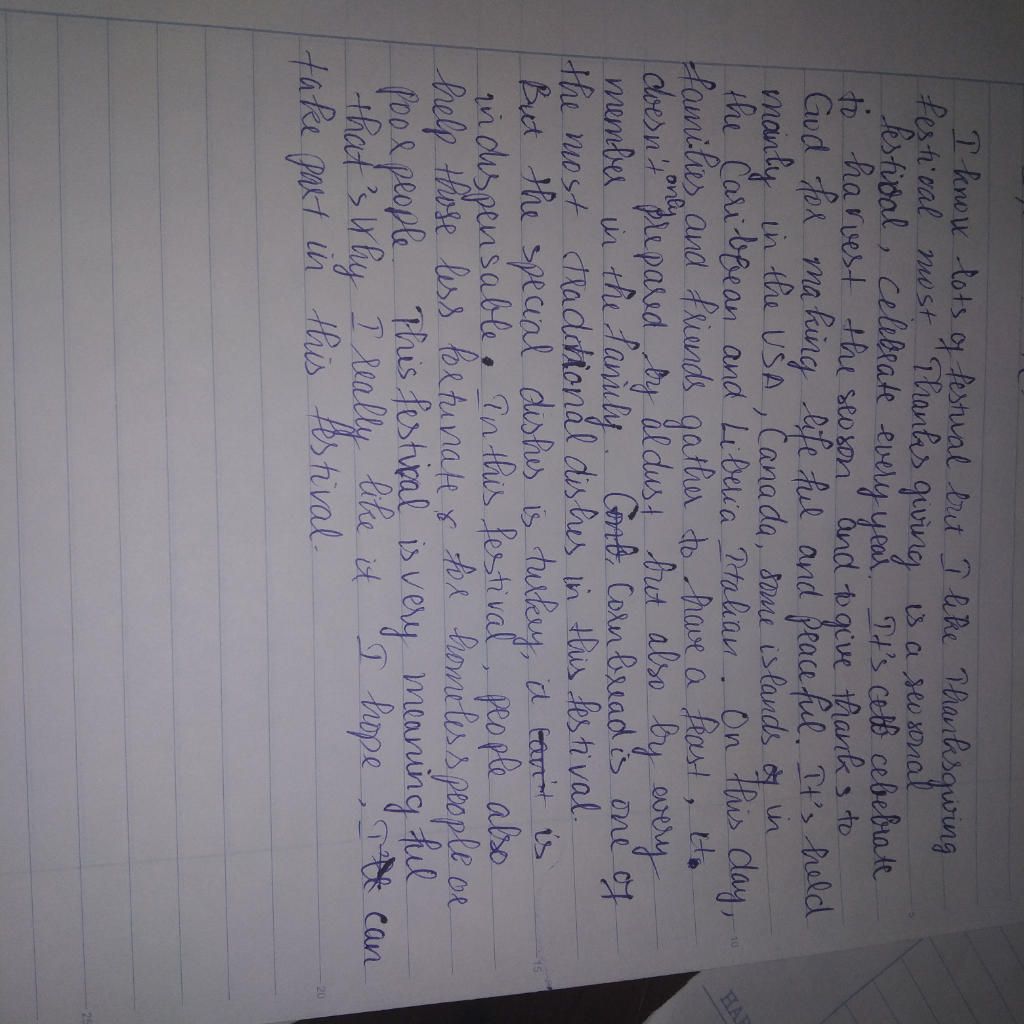 I know lots of festival but I like Thanksgiving
festival most. Thanks giving is a seasonal
festival, celebrate every year. It's celebrate
to harvest the season and to give thanks to
God for making life ful and peaceful. It's held
mainly in the USA, Canada, some islands in
the Caribbean and Liberia Italian. On this day,
families and friends gather to have a feast, it
doesn't only prepared by aldust but also by every
member in the family. Corn bread is one of
the most traditional dishes in this festival.
But the special dishes is turkey, it is
indispensable. In this festival, people also
help those less fortunate for homeless people or
poor people. This festival is very meaning ful
that's why I really like it I hope, I can
take part in this festival.
5
10
15
20
25